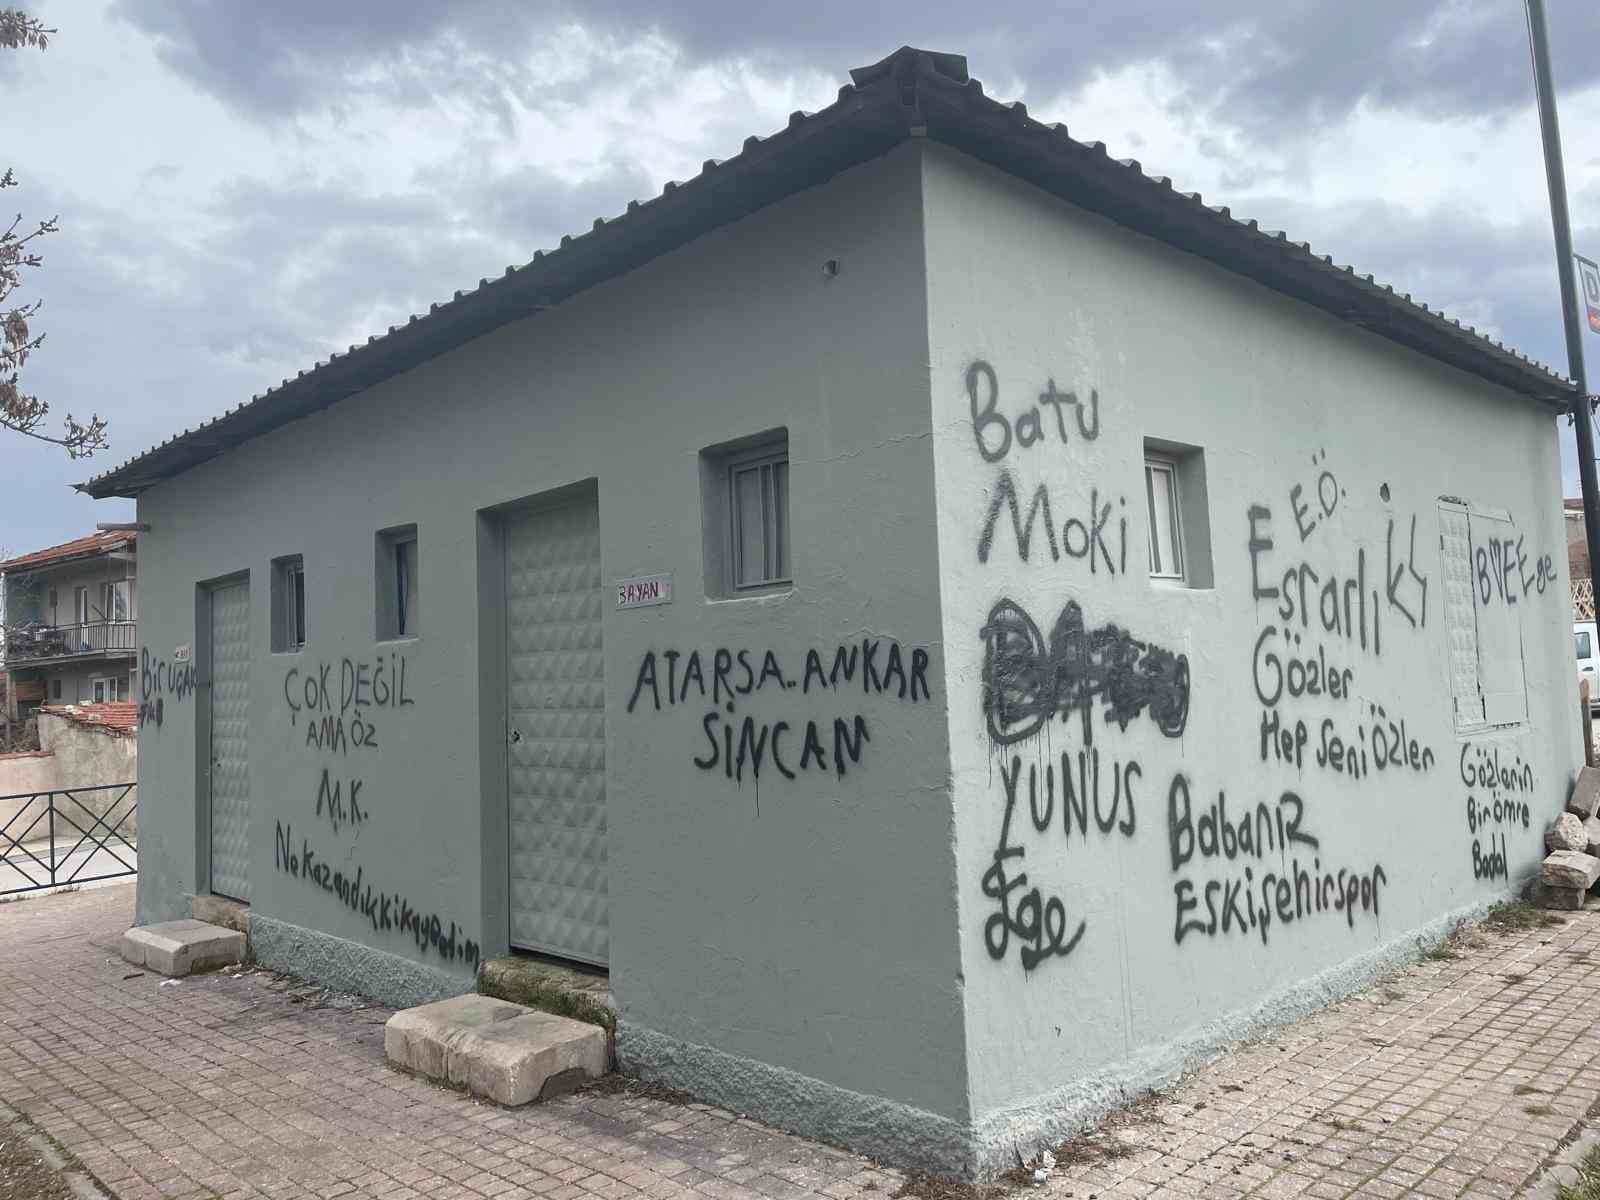 Bir UÇAK
ÇOK DEĞİL
AMA ÖZ
M.K.
Ne Kazandık ki kaybedim
BAYAN
ATARSA.. ANKAR
SİNCAN
Batu
Moki
YUNUS
Ege
E.Ö.
Esrarlı
Gözler
Hep Seni Özler
Babanız
Eskişehirspor
Ege
Gözlerin
Bir ömre
Bedel